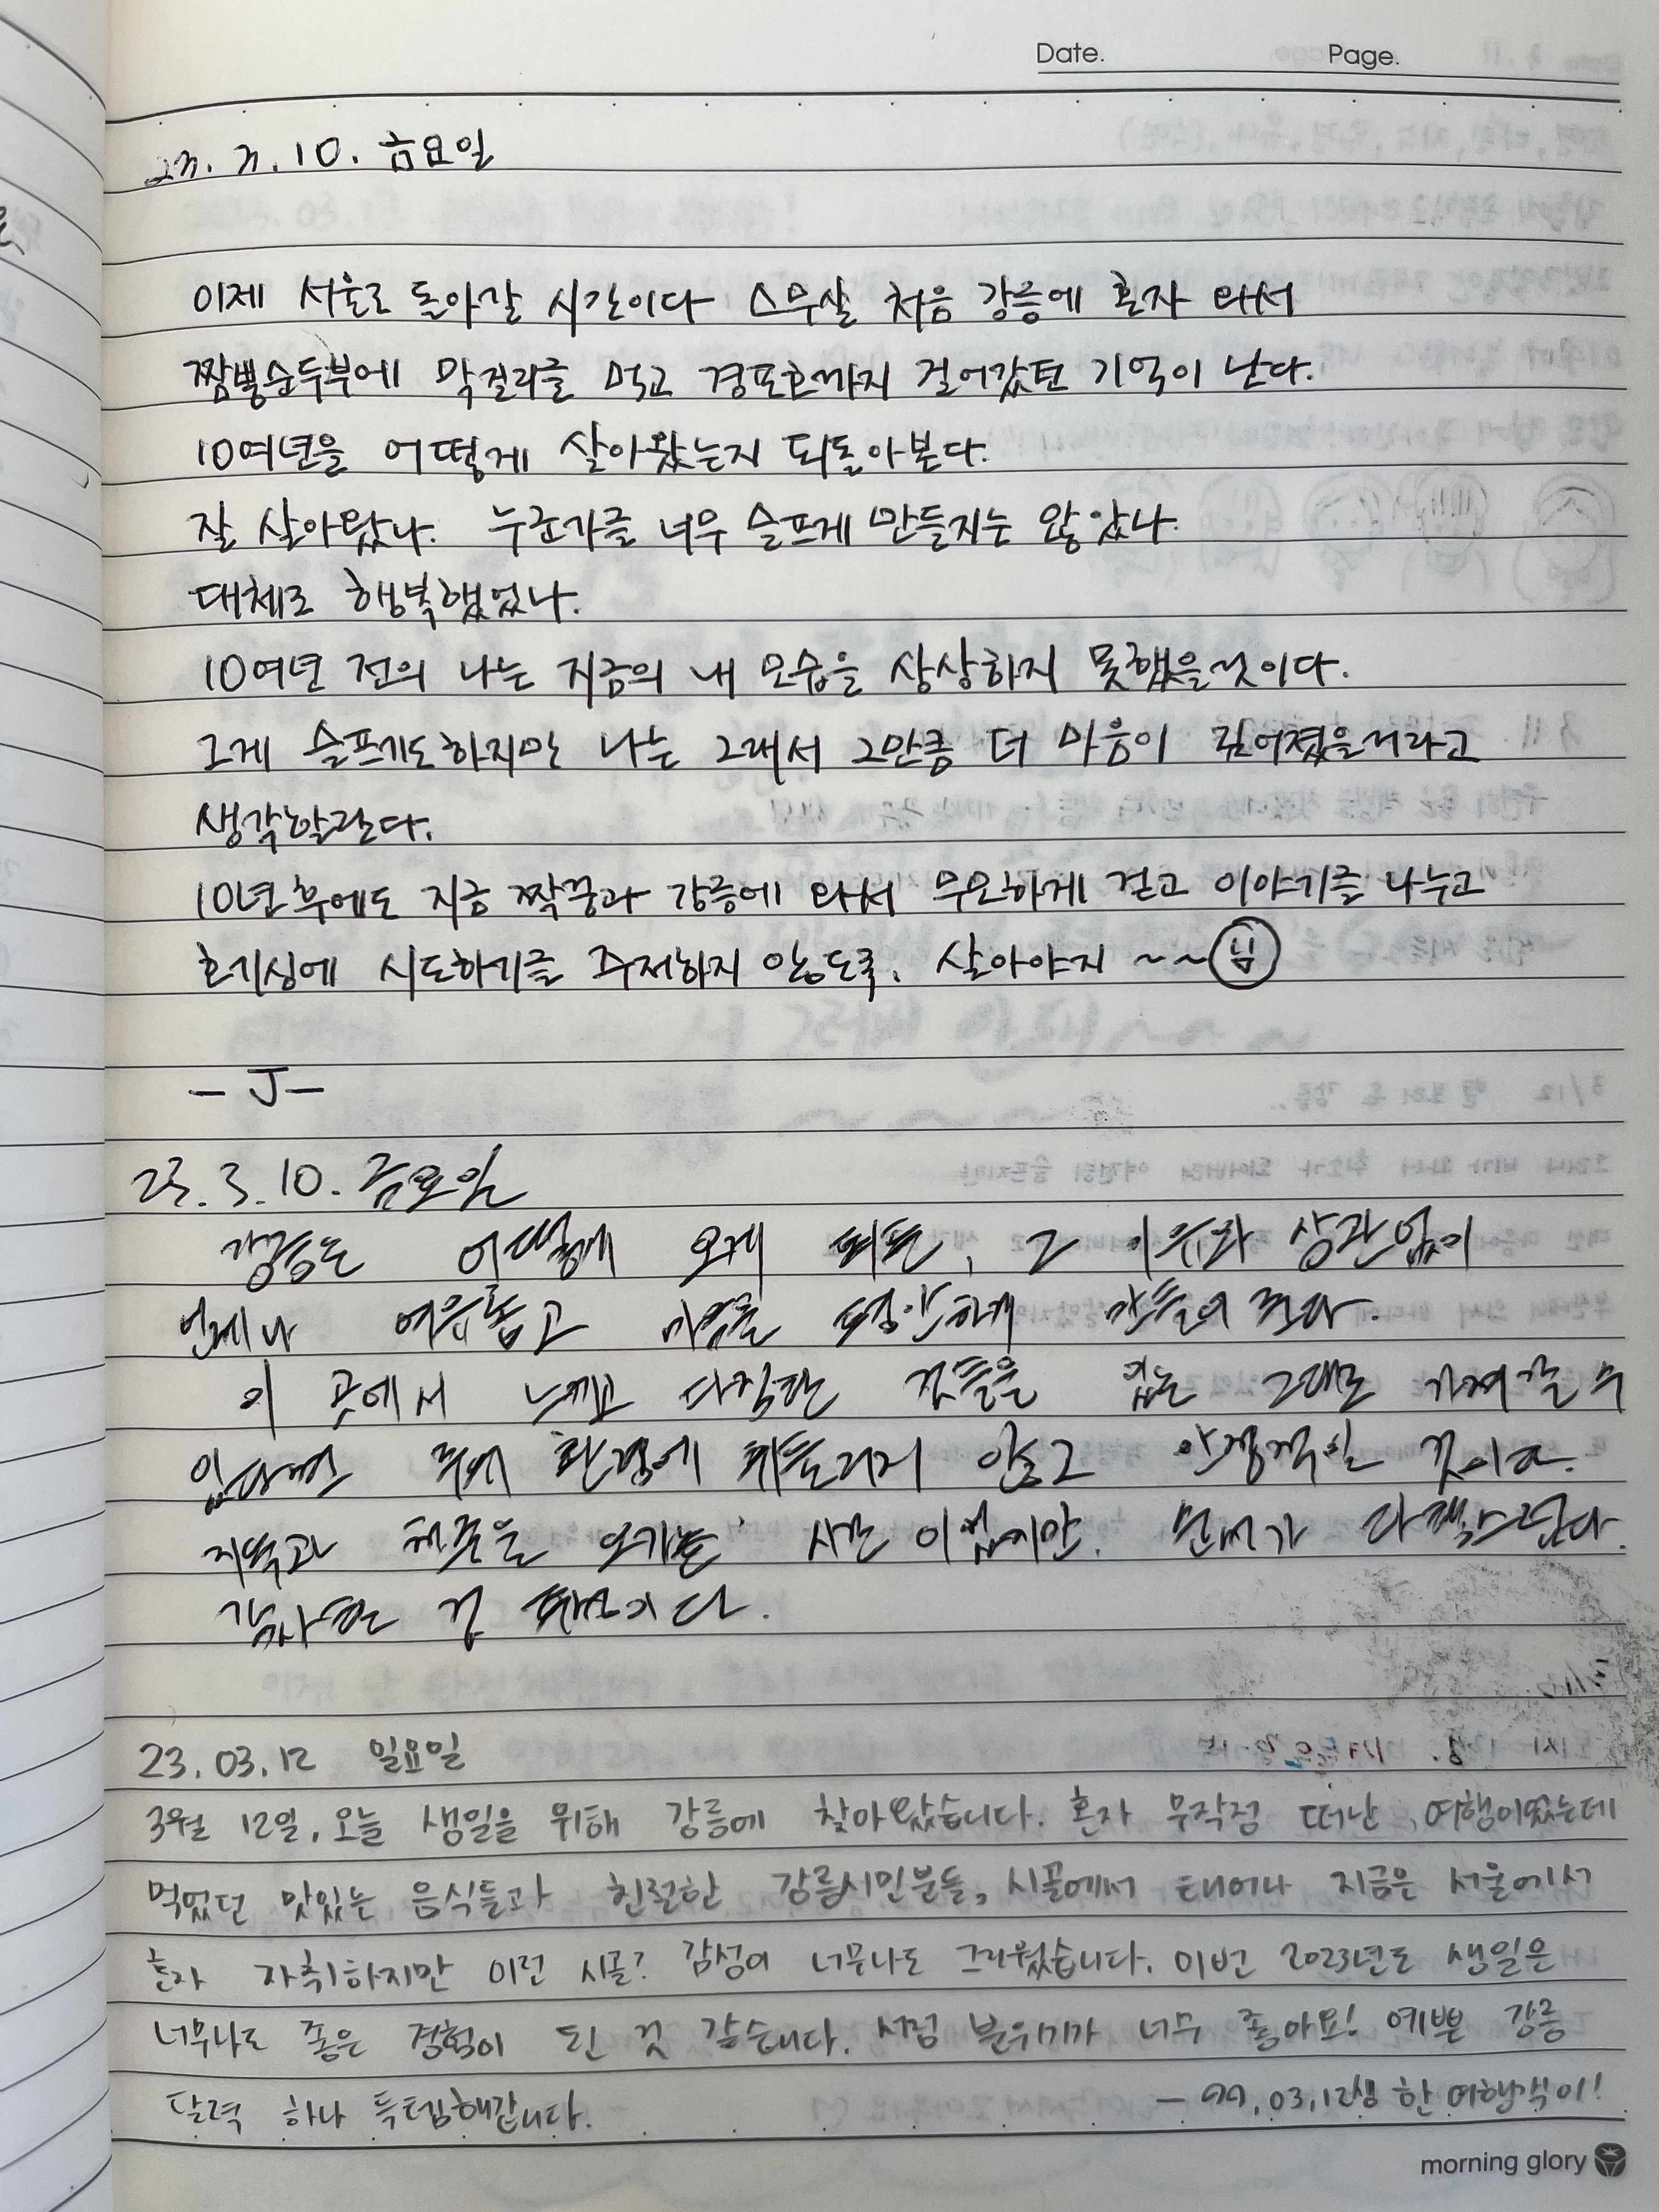 Date. Page.
23. 3. 10. 금요일
이제 서울로 돌아갈 시간이다 스무살 처음 강릉에 혼자 와서
짬뽕순두부에 막걸리를 먹고 경포호까지 걸어갔던 기억이 난다.
10여년을 어떻게 살아왔는지 되돌아본다.
잘 살아왔나. 누군가를 너무 슬프게 만들지는 않았나.
대체로 행복했었나.
10여년 전의 나는 지금의 내 모습을 상상하지 못했을것이다.
그게 슬프기도하지만 나는 그래서 그만큼 더 마음이 깊어졌을거라고
생각할란다.
10년후에도 지금 짝꿍과 강릉에 와서 무모하게 걷고 이야기를 나누고
호기심에 시도하기를 주저하지 않도록. 살아야지 ~~ 님
- J -
23. 3. 10. 금요일
강릉은 어떻게 오게 되든, 그 이유와 상관없이
언제나 여유롭고 마음을 평안하게 만들어 준다.
이 곳에서 느끼고 다짐한 것들을 있는 그대로 가져갈 수
있다면 주변 환경에 휘둘리지 않고 안정적일 것이다.
시간이었지만. 먼저가 다행스럽다.
감사한 것 투성이다.
23. 03. 12 일요일
3월 12일, 오늘 생일을 위해 강릉에 찾아왔습니다. 혼자 무작정 떠난 여행이었는데
먹었던 맛있는 음식들과 친절한 강릉시민분들, 시골에서 태어나 지금은 서울에서
혼자 자취하지만 이런 시골? 감성이 너무나도 그리웠습니다. 이번 2023년도 생일은
너무나도 좋은 경험이 된 것 같습니다. 서점 분위기가 너무 좋아요! 예쁜 강릉
달력 하나 득템해갑니다. - 99. 03. 12생 한 여행객이!
morning glory